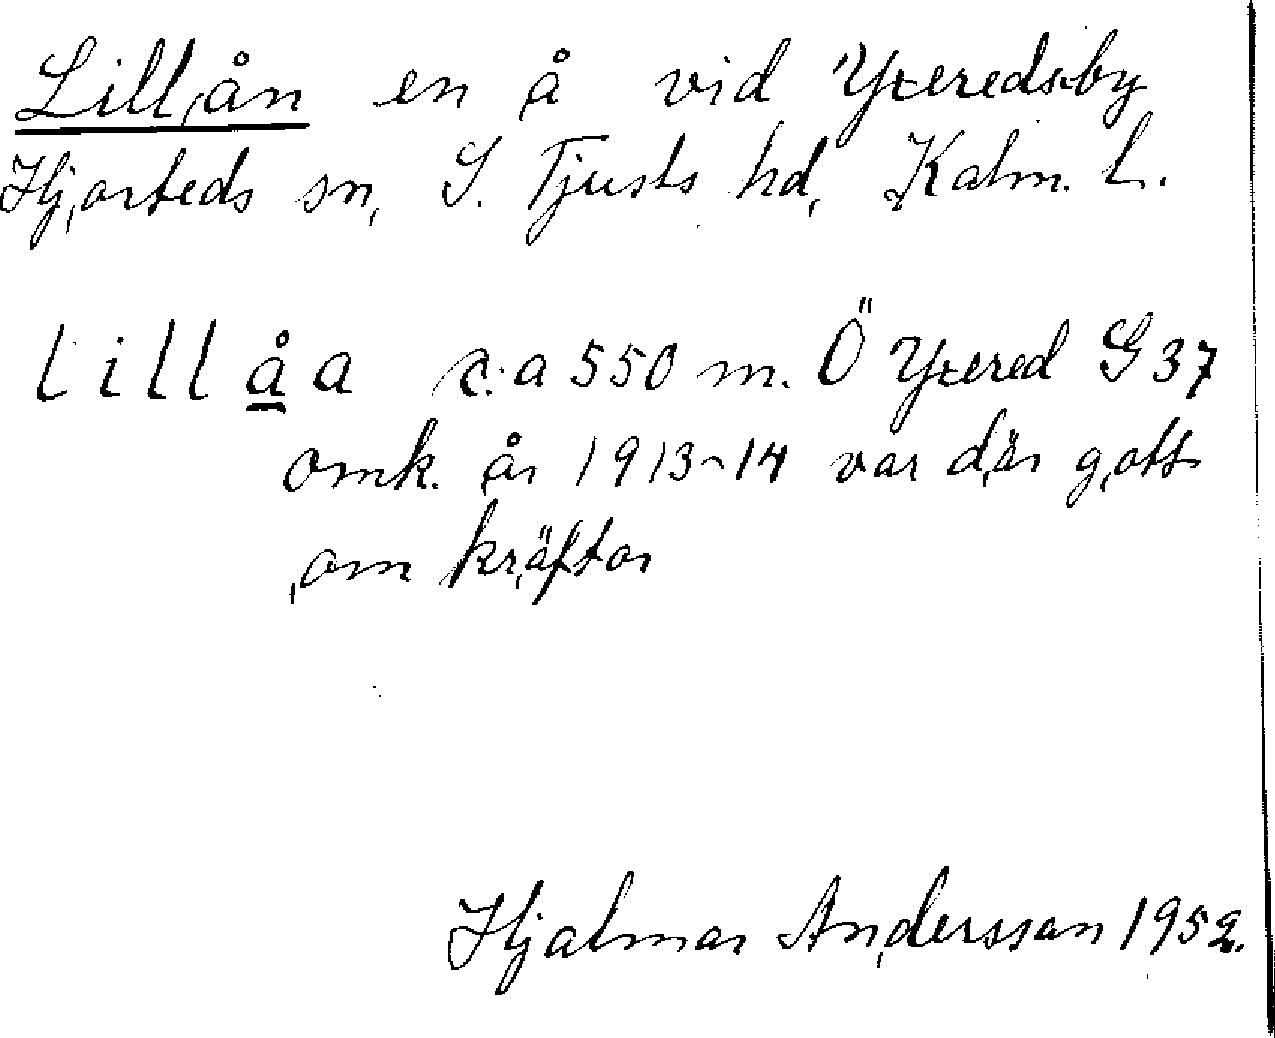 Lillån en å vid Yxeredsby
Hjorteds sn, S. Tjusts hd, Kalm. L.
Lillåa c:a 550 m. Ö Yxered G 37
omk. år 1913-14 var där gott
om kräftor
Hjalmar Andersson 1952.